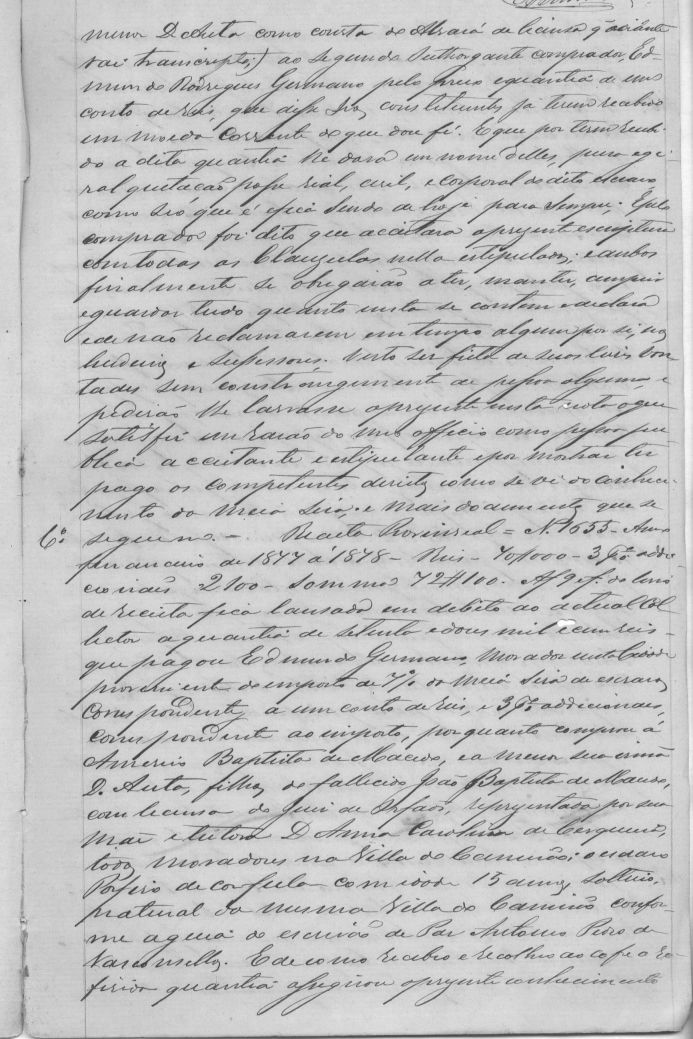 menor D. Auta como consta do Alvará de licença q̃ adiante
vai transcripto;) ao segundo Outhorgante comprador, Ed-
mundo Rodrigues Germano pelo preço e quantia de um
conto de reis, que disse constituintes já terem recebido
em moeda corrente do que dou fé. E que por terem recebi-
do a dita quantia lhe dava em nome delles, pura e ge-
ral quitação posse rial, civil, e corporal do dito escravo
como seó que é e fica sendo de hoje para sempre; E pelo
comprador foi dito que acceitava a presente escriptura
com todas as Clauzulas nella estipuladas; e ambos
finalmente se obrigarão a ter, manter, cumprir
e guardar tudo quanto nesta se contem e declara
e de não reclamarem em tempo algum por si, seos
herdeiros e sucessores. Visto ser feita de suas livres von-
tades sem constrangimento de pessoa alguma e
pedirão lhe lavrasse a presente nesta nota o que
satisfis em razão do meo officio como pessoa pu-
blica acceitante e estipulante e por mostrar ter
pago os competentes direitos como se vê do conheci-
mento da meia siza e mais documentos que se
seguem. - Receita Provincial = N. 1655 - Anno
6º financeiro de 1877 á 1878 - Reis - 70$000 - 3 p% addi-
cionaes 2100 - Somma 72$100. Af 9 of. do livro
de receita fica lansada em debito ao actual Col-
lector a quantia de setenta e dous mil e cem reis -
que pagou Edmundo Germano, morador nesta Cidade
proveniente do imposto de 7% da meia siza de escravos
correspondente a um conto de reis, e 3 p% addicionaes,
correspondente ao imposto, por quanto comprou á
Americo Baptista de Macedo, e a menor sua irmã
D. Auta, filhos do fallecido João Baptista de Macedo,
com licença do Juiz de Orfãos, representada por sua
mãe e tutora D Anna Carolina de Cerqueira,
todos moradores na Villa do Camisão; o escravo
Porfirio de cor fula com idade 15 annos, solteiro,
natural da mesma Villa do Camisão confor-
me a guia do escrivão de Paz Antonio de
Vasconcellos. E de como recebeo e recolheo ao cofre a re-
ferida quantia assignou o presente conhecimento